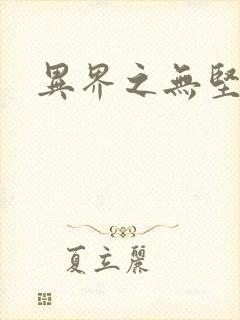 異界之無堅
夏立麗